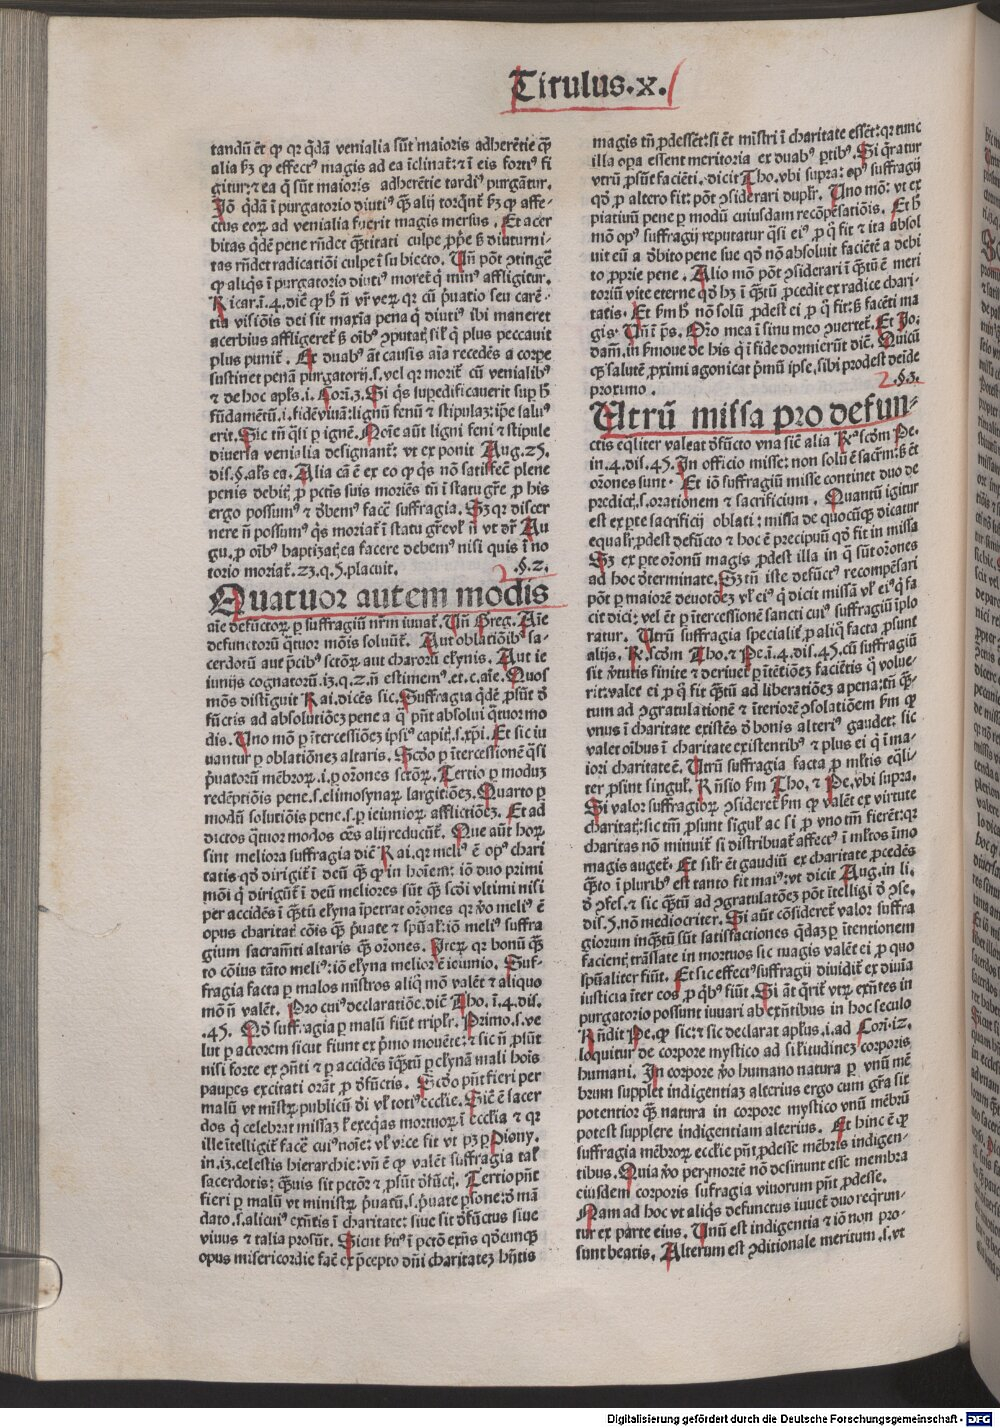 Titulus.x.
tandū ēt ꝙ qꝛ q̄dā venialia sūt maioris adherētie q̄ꝫ
alia ẜꝫ ꝙ effectꝰ magis ad ea īclinat: ⁊ ī eis fortiꝰ fi
gitur: ⁊ ea q̄ sūt maioris adherētie tardiꝰ purgātur.
Iō q̄dā ī purgatorio diutiꝰ q̄ꝫ alij torqn̄t ẜꝫ ꝙ affe-
ctus eoꝝ ad venialia fuerit magis mersus. Et acer
bitas q̄dē pene rn̄det q̄titati culpe ꝓpꝛie ẜ diuturni-
tas rn̄det radicatiōi culpe ī subiecto. Vn̄ pōt ꝯtingē
ꝙ aliqs ī purgatorio diutiꝰ moret̄ q̄ minꝰ affligitur.
Ricar. ī. 4. diē ꝙ h̄ n̄ vr̄ veꝝ qꝛ cū pꝛiuatio seu carē-
tia visiōis dei sit maxīa pena q̄ diutiꝰ ibi maneret
acerbius affligeret̄ ẜ oībꝰ ꝯputat̄ sīl q̄ plus peccauit
plus punit̄. Ex duabꝰ āt causis aīa recedēs a corpe
sustinet penā purgatorij. s. vel qꝛ morit̄ cū venialibꝰ
⁊ de hoc apl̄s. i. Cori. 3. Si q̄s supedificauerit sup h̄
fūdamētū. i. fidē viuā: lignū fenū ⁊ stipulaꝫ: ip̄e saluꝰ
erit. Sic tn̄ q̄si p ignē. Noīe aūt ligni feni ⁊ stipule
diuersa venialia designant̄: vt exponit Aug. 25.
dis. §. al̄s ea. Alia cā ē ex eo ꝙ q̄s nō satisfec̄ plene
penis debit̄ ꝓ pctīs suis moriēs tn̄ ī statu gr̄e ꝓ his
ergo possumꝰ ⁊ d̄bemꝰ facē suffragia. Sꝫ qꝛ discer
nere n̄ possumꝰ q̄s moriat̄ ī statu gr̄e vl̄ n̄ vt dr̄ Au
gu. ꝓ oībꝰ baptizat̄ ea facere debemꝰ nisi quis ī no
torio moriat̄. 23. q. 5. placuit. .§.2.
Quatuor autem modis
aīe defunctoꝝ p suffragiū nr̄m iuuāt̄. Vn̄ Greg. Aīe
defunctorū q̄tuor mōis soluūt̄. Aut oblatiōibꝰ sa-
cerdotū aut p̄cibꝰ sctōꝝ aut charorū elynis. Aut ie
iunijs cognatorū. 13. q. 2. n̄ estimemꝰ. et. c. aīe. Quos
mōs distīguit Rai. dicēs sic. Suffragia q̄dē ꝓsūt d̄
fūctis ad absolutiōeꝫ pene a q̄ pn̄t absolui q̄tuor mo
dis. Uno mō p ītercessiōeꝫ ipsiꝰ capit̄. s. xp̄i. Et sic iu
uantur p oblatiōneꝫ altaris. Scdo p ītercessionē q̄si
pꝛiuatorū mēbroꝝ. i. p or̄ones sctōꝝ. Tertio p moduꝫ
redēptiōis pene. s. elimosynaꝝ largitiōeꝫ. Quarto p
modū solutiōis pene. s. p ieiunioꝝ afflictiōeꝫ. Et ad
dictos q̄tuor modos oēs alij reducūt̄. Que aūt hoꝝ
sint meliora suffragia diē Rai. qꝛ meliꝰ ē opꝰ chari
tatis qd̄ dirigit̄ ī deū q̄ꝫ ꝙ in hoīem: iō duo primi
mōi q̄ dirigūt̄ ī deū meliores sūt q̄ꝫ scdi vltimi nisi
per accidēs ī q̄tū elyna īpetrat or̄ones qꝛ v̄o meliꝰ ē
opus charitat̄ cōis q̄ꝫ pꝛiuate ⁊ sp̄ual̄: iō meliꝰ suffra
gium sacramēti altaris q̄ꝫ or̄ones. Iteꝝ qꝛ bonū q̄ꝫ
to cōius tāto meliꝰ: iō elyna melior ē ieiunio. Suf-
fragia facta p malos mīstros aliq̄ mō valēt ⁊ aliquo
mō n̄ valēt. Pro cuiꝰ declaratiōe. diē Tho. ī. 4. dis.
.45. Qd̄ suffragia p malū fiūt triplr̄. Primo. s. ve
lut p actorem sicut fiunt ex p̄mo mouēte: ⁊ sic n̄ ꝓsūt
nisi forte ex ꝯn̄ti ⁊ p accidēs īq̄tū p elynā mali hoīs
paupes excitati orāt̄ ꝓ d̄fūctis. Scdo pn̄t fieri per
malū vt mīstrꝝ publicū d̄i vl̄ totiꝰ ecclīe. Sic ē sacer
dos q̄ celebrat missaꝫ vl̄ exeqas mortuoꝝ ī ecclīa ⁊ qꝛ
ille ītelligit̄ facē cuiꝰ noīe: vl̄ vice fit vt pꝫ p Diony.
in. 13. celestis hierarchie: vn̄ ē ꝙ valēt suffragia tal̄
sacerdotis: q̄uis sit pctōr ⁊ ꝓsūt d̄fūct̄. Tertio pn̄t
fieri p malū vt ministꝝ pꝛiuatū. s. pꝛiuate psone: d̄ mā
dato. s. alicuiꝰ exn̄tis ī charitate: siue sit d̄fūctus siue
viuus ⁊ talia prosūt. Sicut hr̄ꝰ ī pctō exn̄s qd̄cunqꝫ
opus misericordie fac̄ ex p̄cepto dn̄i charitateꝫ hn̄tis
magis tn̄ ꝓdessēt: si ēt mīstri ī charitate essēt: qꝛ tunc
illa opa essent meritoria ex duabꝰ ptibꝰ. Si q̄ratur
vtrū ꝓsūt faciēti. dicit Tho. vbi supra: opꝰ suffragij
qd̄ ꝓ altero fit: pōt ꝯsiderari duplr̄. Uno mō: vt ex
piatiuū pene p modū cuiusdam recōpēsatiōis. Et h̄
mō opꝰ suffragij reputatur q̄si eiꝰ ꝓ q̄ fit ⁊ ita absol
uit eū a d̄bito pene sue qd̄ nō absoluit faciētē a debi
to proprie pene. Alio mō pōt ꝯsiderari ī q̄tū ē meri
toriū vite eterne qd̄ hꝫ ī q̄tū ꝓcedit ex radice chari-
tatis. Et ẜm h̄ nō solū ꝓdest ei ꝓ q̄ fit: ẜ faciēti ma
gis. Un̄ ī ps. Or̄o mea ī sinu meo ꝯuertet̄. Et Jo.
dam̄. in ẜmone de his q̄ ī fide dormierūt dic̄. Quicū
qꝫ salutē ꝓximi agonicat p̄mū ipse, sibi prodest deīde
proximo. 2 .§.3.
Utrū missa pro defun-
ctis eqliter valeat d̄fūcto vna sic̄ alia Rꝰ scdm Pe.
in. 4. dis. 45. In officio misse: non solū ē sacrm̄: ẜ ēt
or̄ones sunt. Et iō suffragiū misse continet duo de
predict̄. s. orationem ⁊ sacrificium. Quantū igitur
est ex pte sacrificij oblati: missa de quocūqꝫ dicatur
equalr̄ prodest defūcto ⁊ hoc ē precipuū qd̄ fit in missa
Sꝫ ex pte or̄onū magis prodest illa in q̄ sūt or̄ones
ad hoc d̄terminate. Sꝫ tn̄ iste defūctꝰ recompēsari
pōt p maiorē deuotiōeꝫ vl̄ eiꝰ q̄ dicit missā vl̄ eiꝰ q̄ fa
cit dici: vel ēt p ītercessionē sancti cuiꝰ suffragiū īplo
ratur. Utrū suffragia specialit̄ ꝓ aliq̄ facta ꝓsunt
alijs. Rꝰ. scdm Tho. ⁊ Pe. ī. 4. dis. 45. cū suffragiū
sit v̄tutis finite ⁊ deriuet̄ p ītētiōeꝫ faciētis q̄ volue-
rit: valet ei ꝓ q̄ fit q̄tū ad liberatiōeꝫ a pena: tn̄ q̄ꝫ-
tum ad ꝯgratulationē ⁊ īteriorē ꝯsolatiōem ẜm ꝙ
vnus ī charitate existēs d̄ bonis alteriꝰ gaudet: sic
valet oībus ī charitate existentibꝰ ⁊ plus ei q̄ ī ma-
iori charitate ē. Utrū suffragia facta ꝓ mltis eqli-
ter ꝓsint singul̄. Rn̄sio ẜm Tho. ⁊ Pe. vbi supra.
Si valor suffragioꝝ ꝯsideret̄ ẜm ꝙ valēt ex virtute
charitat̄: sic tm̄ ꝓsunt sigul̄ ac si ꝓ vno tm̄ fierēt: qꝛ
charitas nō minuit̄ si distribuat̄ affectꝰ ī ml̄tos īmo
magis auget̄. Et silr̄ ēt gaudiū ex charitate ꝓcedēs
q̄to ī pluribꝰ est tanto fit maiꝰ: vt dicit Aug. in li.
d̄ ꝯfes. ⁊ sic q̄tū ad ꝯgratulatōeꝫ pōt ītelligi d̄ ꝯse.
dis. 5. nō mediocriter. Si aūt cōsideret̄ valor suffra
giorum inq̄tū sūt satisfactiones q̄daꝫ p ītentionem
facient̄ trāslate in mortuos sic magis valēt ei ꝓ quo
sp̄ualiter fiūt. Et sic effectꝰ suffragij diuidit̄ ex diuīa
iusticia īter eos ꝓ q̄bꝰ fiūt. Si āt q̄rit̄ vtꝝ exn̄tes in
purgatorio possunt iuuari ab exn̄tibus in hoc seculo
Rn̄dit Pe. ꝙ sic: ⁊ sic declarat apl̄us. i. ad Cori. 12.
loquitur de corpore mystico ad sil̄itudineꝫ corporis
humani. In corpore v̄o humano natura p vnū mē
brum supplet indigentiaꝫ alterius ergo cum gr̄a sit
potentior q̄ꝫ natura in corpore mystico vnū mēbrū
potest supplere indigentiam alterius. Et hinc ē ꝙ
suffragia mēbroꝝ ecclīe pn̄t ꝓdesse mēbris indigen-
tibus. Quia v̄o per mortē nō desinunt esse membra
eiusdem corporis sufragia viuorum pn̄t ꝓdesse.
Nam ad hoc vt aliq̄s defunctus iuuet̄ duo req̄run-
tur ex parte eius. Unū est indigentia ⁊ iō non pro-
sunt beatis. Alterum est ꝯditionale meritum. s. vt
Digitalisierung gefördert durch die Deutsche Forschungsgemeinschaft - DFG